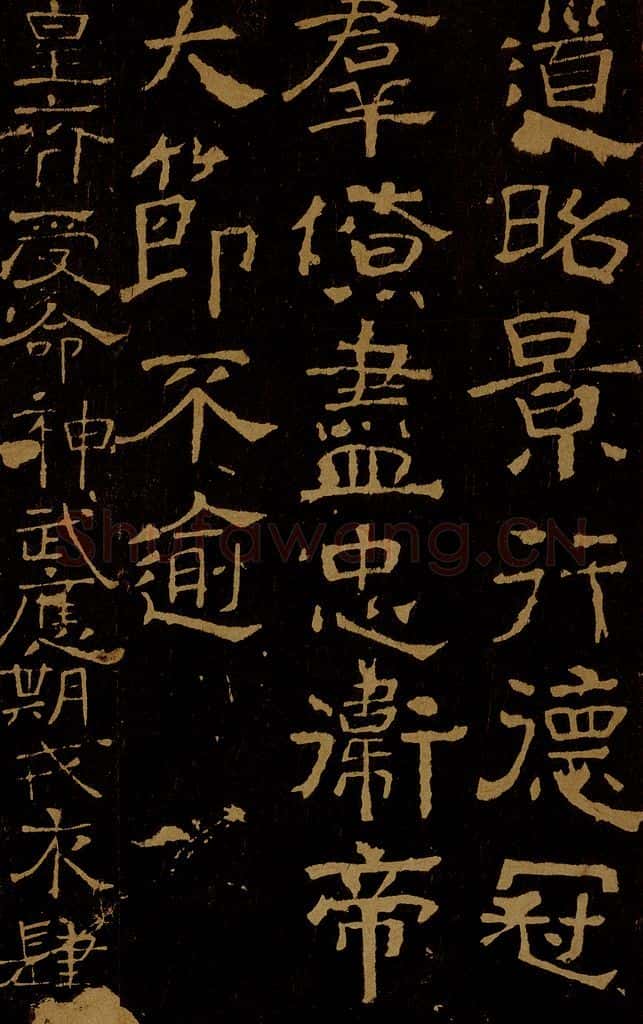 道昭景行德冠
羣僚盡忠衛帝
大節不逾
皇受命神武應期戎衣肆
Shufawang.CN